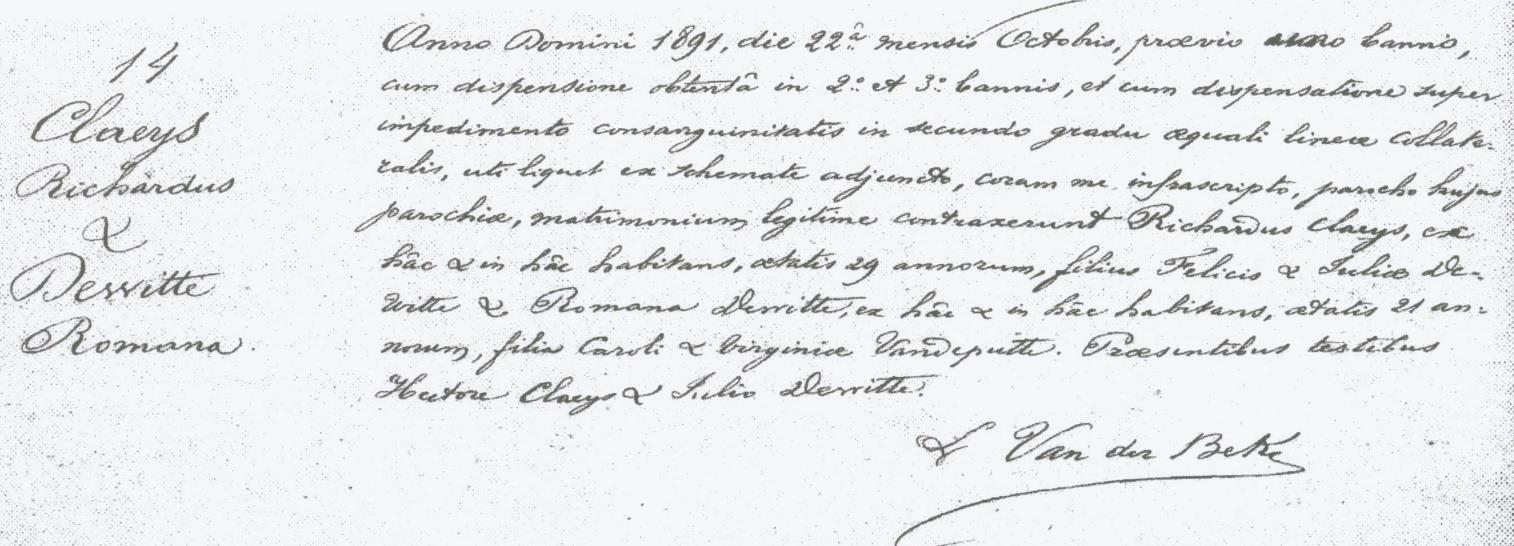 14
Claeys
Richardus
&
Dewitte
Romana.
Anno Domini 1891, die 22â mensis Octobris, prævio uno banno,
cum dispensione obtentâ in 2º et 3º bannis, et cum dispensatione super
impedimento consanguinitatis in secundo gradu æquali lineæ collate-
ralis, uti liquet ex schemate adjuncto, coram me infrascripto, parocho hujus
parochiæ, matrimonium legitime contraxerunt Richardus Claeys, ex
hâc & in hâc habitans, ætatis 29 annorum, filius Felicis & Juliæ De-
witte & Romana Dewitte, ex hâc & in hâc habitans, ætatis 21 an-
norum, filia Caroli & Virginiæ Vandeputte. Præsentibus testibus
Hectore Claeys & Julio Dewitte.
L Van der Beke